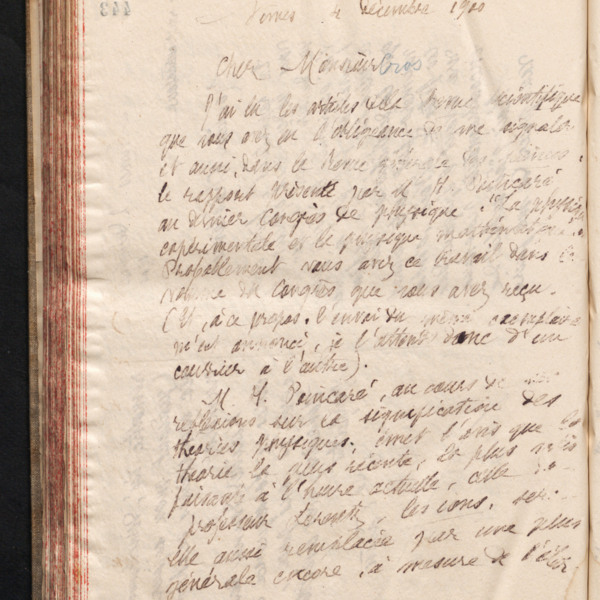 4 décembre 1900
Cher Monsieur Cros
J'ai lu les articles de la Revue scientifique
que vous avez eu l'obligeance de me signaler
et aussi, dans la Revue générale des sciences,
le rapport présenté par M. H. Poincaré
au dernier Congrès de physique : "La physique
expérimentale et la physique mathématique".
Probablement vous avez ce travail dans le
volume du Congrès que vous avez reçu.
(Et, à ce propos, l'envoi du même exemplaire
m'est annoncé, je l'attends donc d'un
courrier à l'autre).
M. H. Poincaré, au cours de
réflexions sur la signification des
théories physiques, émet l'avis que la
théorie la plus récente, la plus
à l'heure actuelle, celle
professeur Lorentz, les ions, ser
elle aussi remplacée par une plus
générale encore, à mesure de